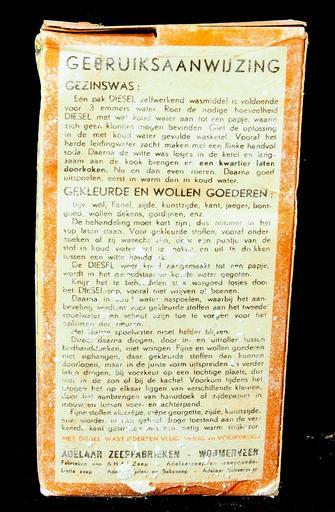 GEBRUIKSAANWIJZING
GEZINSWAS:
Eén pak DIESEL zelfwerkend wasmiddel is voldoende
voor 3 emmers water. Roer de nodige hoeveelheid
DIESEL met wat koud water aan tot een papje, waarin
zich geen klontjes mogen bevinden. Giet de oplossing
in de met koud water gevulde wasketel. Vooraf het
harde leidingwater zacht maken met een flinke handvol
soda. Daarna de witte was losjes in de ketel en lang-
zaam aan de kook brengen er een kwartier laten
doorkoken. Nu en dan even roeren. Daarna goed
uitspoelen, eerst in warm dan in koud water.
GEKLEURDE EN WOLLEN GOEDEREN:
bijv. wol, flanel, zijde, kunstzijde, kant, jaeger, bont-
goed, wollen dekens, gordijnen, enz.
De behandeling moet kort zijn; dus nimmer in het
sop laten staan. Voor gekleurde stoffen, vooraf onder-
zoeken of zij wasecht zijn, door een puntje van de
stof in koud water te maken en uit te drukken
tussen een witte handdoek.
De DIESEL weer koud aangemaakt tot een papje,
wordt in het gereedstaande koude water gegoten.
Knijp het te behandelen stuk wasgoed losjes door
het DIESEL-sop, vooral niet wrijven of boenen.
Daarna in koud water naspoelen, waarbij het aan-
beveling verdient voor gekleurde stoffen aan het tweede
spoelwater een scheut azijn toe te voegen voor het
ophalen der kleuren.
Het laatste spoelwater moet helder blijven.
Direct daarna drogen, door in- en uitrollen tussen
badhanddoeken, niet wringen. Fijne en wollen goederen
niet ophangen, daar gekleurde stoffen dan kunnen
doorlopen, maar in de juiste vorm uitspreiden en verder
laten drogen, bij voorkeur op een tochtige plaats, dus
niet in de zon of bij de kachel. Voorkom tijdens het
drogen het op elkaar liggen van verschillende kleuren,
door het aanbrengen van handdoek of zijdepapier in
mouwen en tussen voor- en achterpand.
Fijne stoffen als crêpe, crêpe georgette, zijde, kunstzijde,
enz. worden in licht gerold droge toestand aan de ver-
keerde kant gestreken met een matig warm strijkijzer.
MET DIESEL WAST IEDEREEN VLUG, VEILIG en VOORDELIG!
ADELAAR ZEEPFABRIEKEN - WORMERVEER